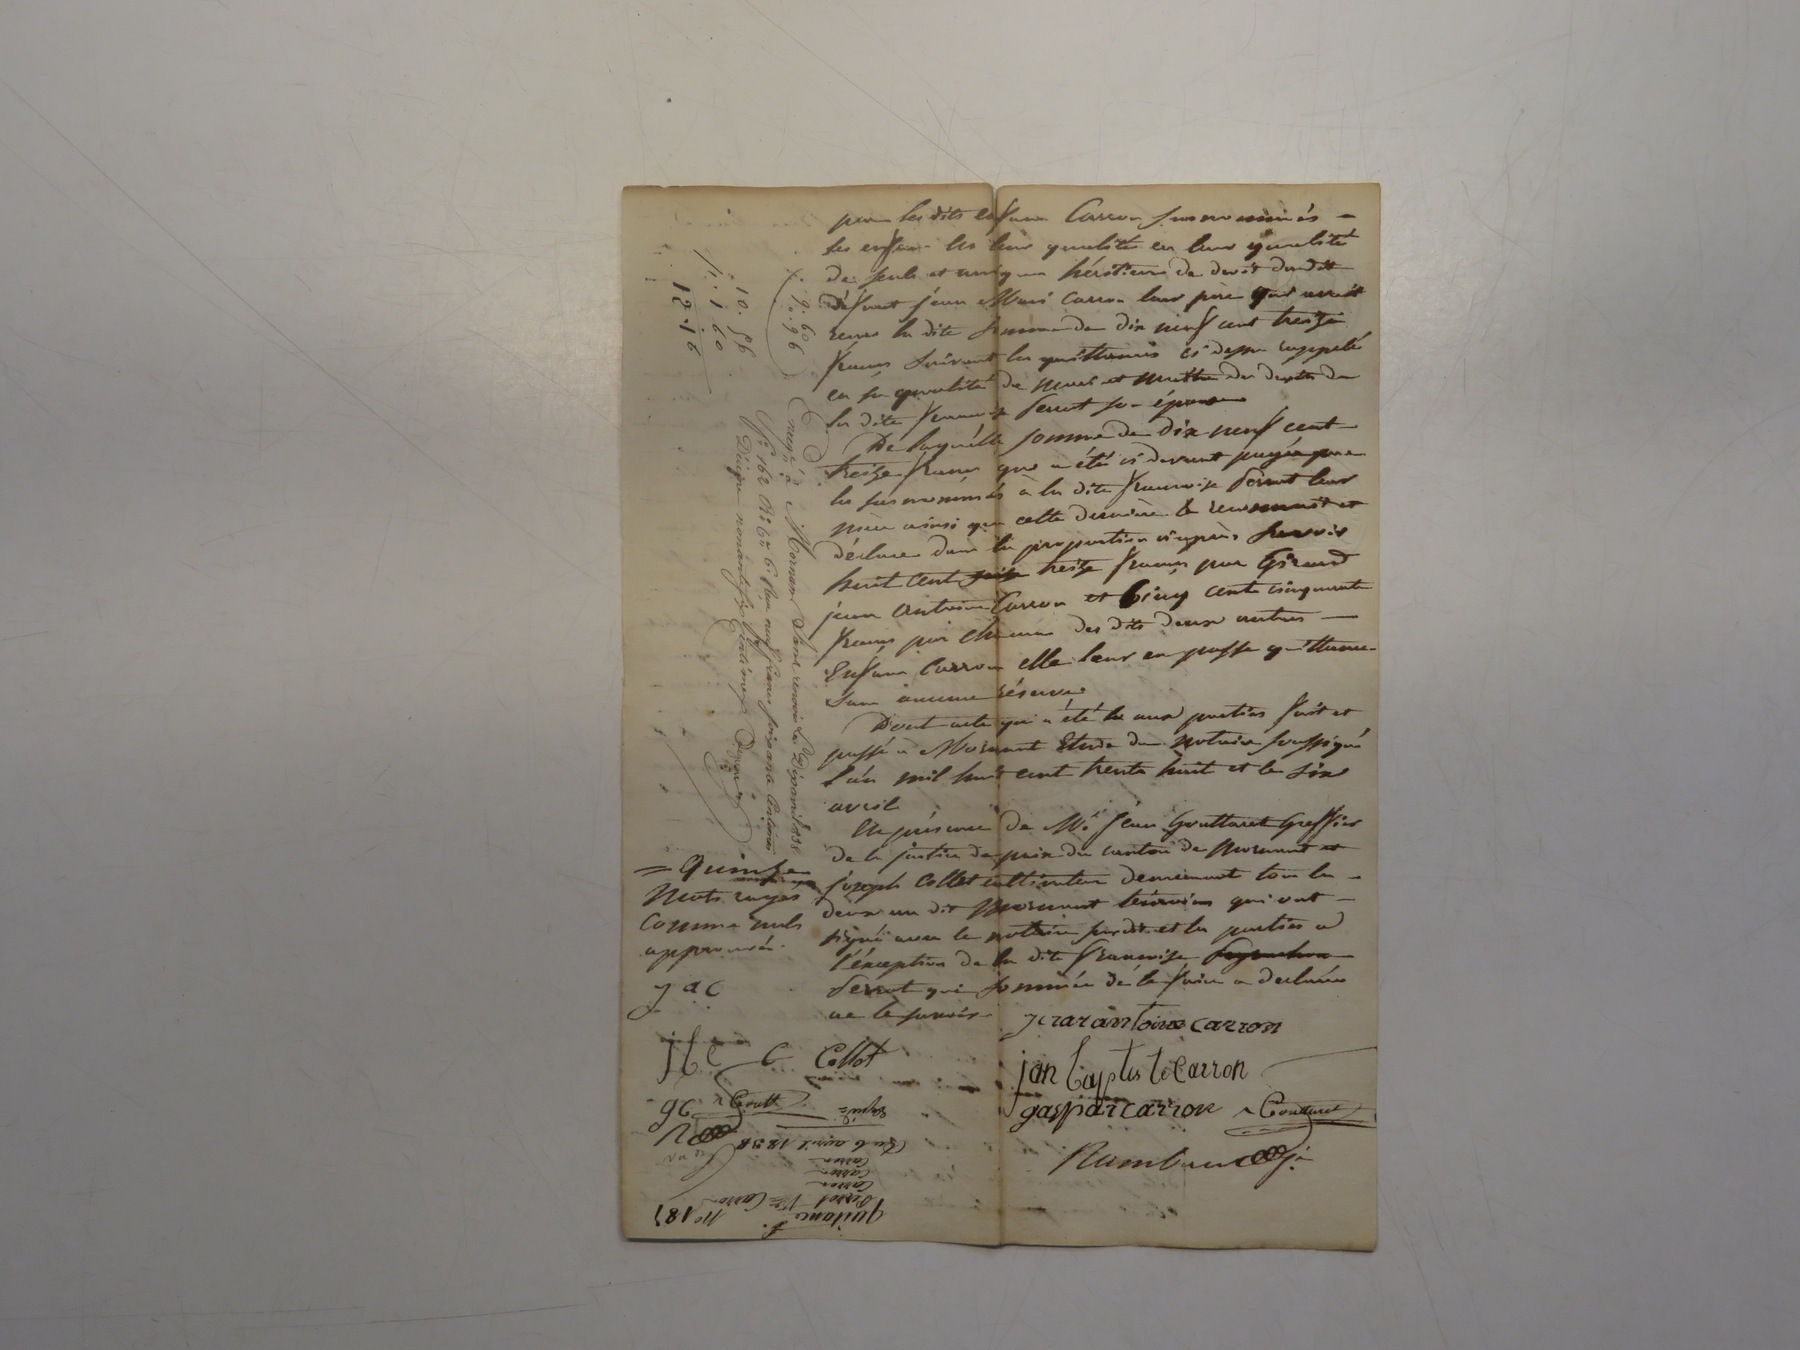 pour les dits enfans Carron surnommés –
ses enfans les leur qualités en leur qualité
de seuls et uniques héritiers de droit dudit
défunt jean Marie Carron leur père qui avait
reçu la dite somme de dix neuf cent treize
francs suivant les quittances ci dessus rappelé
en sa qualité de mari et maitre des droits de
la dite francoise Perrot son épouse
De laquelle somme de dix neuf cent
treize francs que a été ci devant payée par
les susnommés à la dite francoise Perrot leur
mère ainsi que cette dernière le reconnait et
déclare dans la proportion ci après savoir
huit cent treize francs par Girard
jean antoine Carron et Cinq cent cinquante
francs par chacun des dits deux autres –
Enfans Carron elle leur en passe quittance
sans aucune réserve
Dont acte qui a été lu aux parties fait et
passé à Mornant Etude du notaire soussigné
l'an mil huit cent trente huit et le six
avril
En présence de Mr Jean Gouttaret Greffier
de la justice de paix du canton de Mornant et
joseph Collet cultivateur demeurant tous les –
deux au dit Mornant témoins qui ont –
signé avec le notaire susdit et les parties à
l'exception de la dite francoise
Perrot qui sommée de le faire a déclaré
ne le savoir
gerar antoine carron
C Collet
jan baptiste Carron
gaspar carron Gouttaret
= Quinze
Mots rayés
comme nuls
approuvés
g a c
j b c
g c Goutt
9. 60
. 96
10. 56
1. 60
12. 16
Enregé à Mornant Sans renvoi Le Dix avril 1838
fo 162 Ro Cn 6. Reçu neuf francs soixante Centimes
Dixième nonante six Centimes
No 187
Quittance
Perrot Ve Carron
Carron
Carron
Carron
Du 6 avril 1838